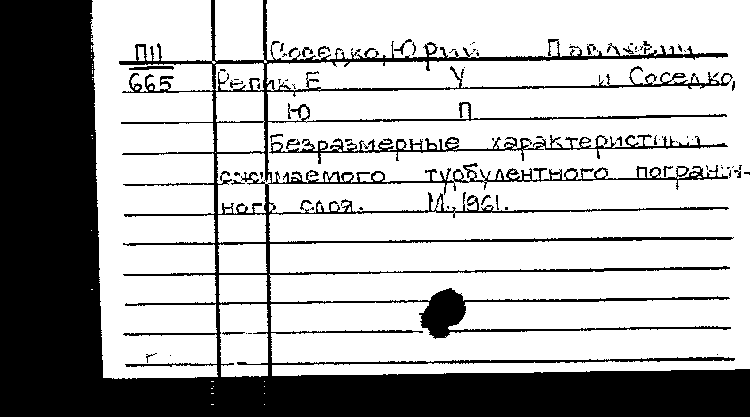 П11 Соседко, Юрий Павлович
665 Репик, Е У и Соседко,
Ю П
Безразмерные характеристики
сжимаемого турбулентного погранич-
ного слоя. М., 1961.